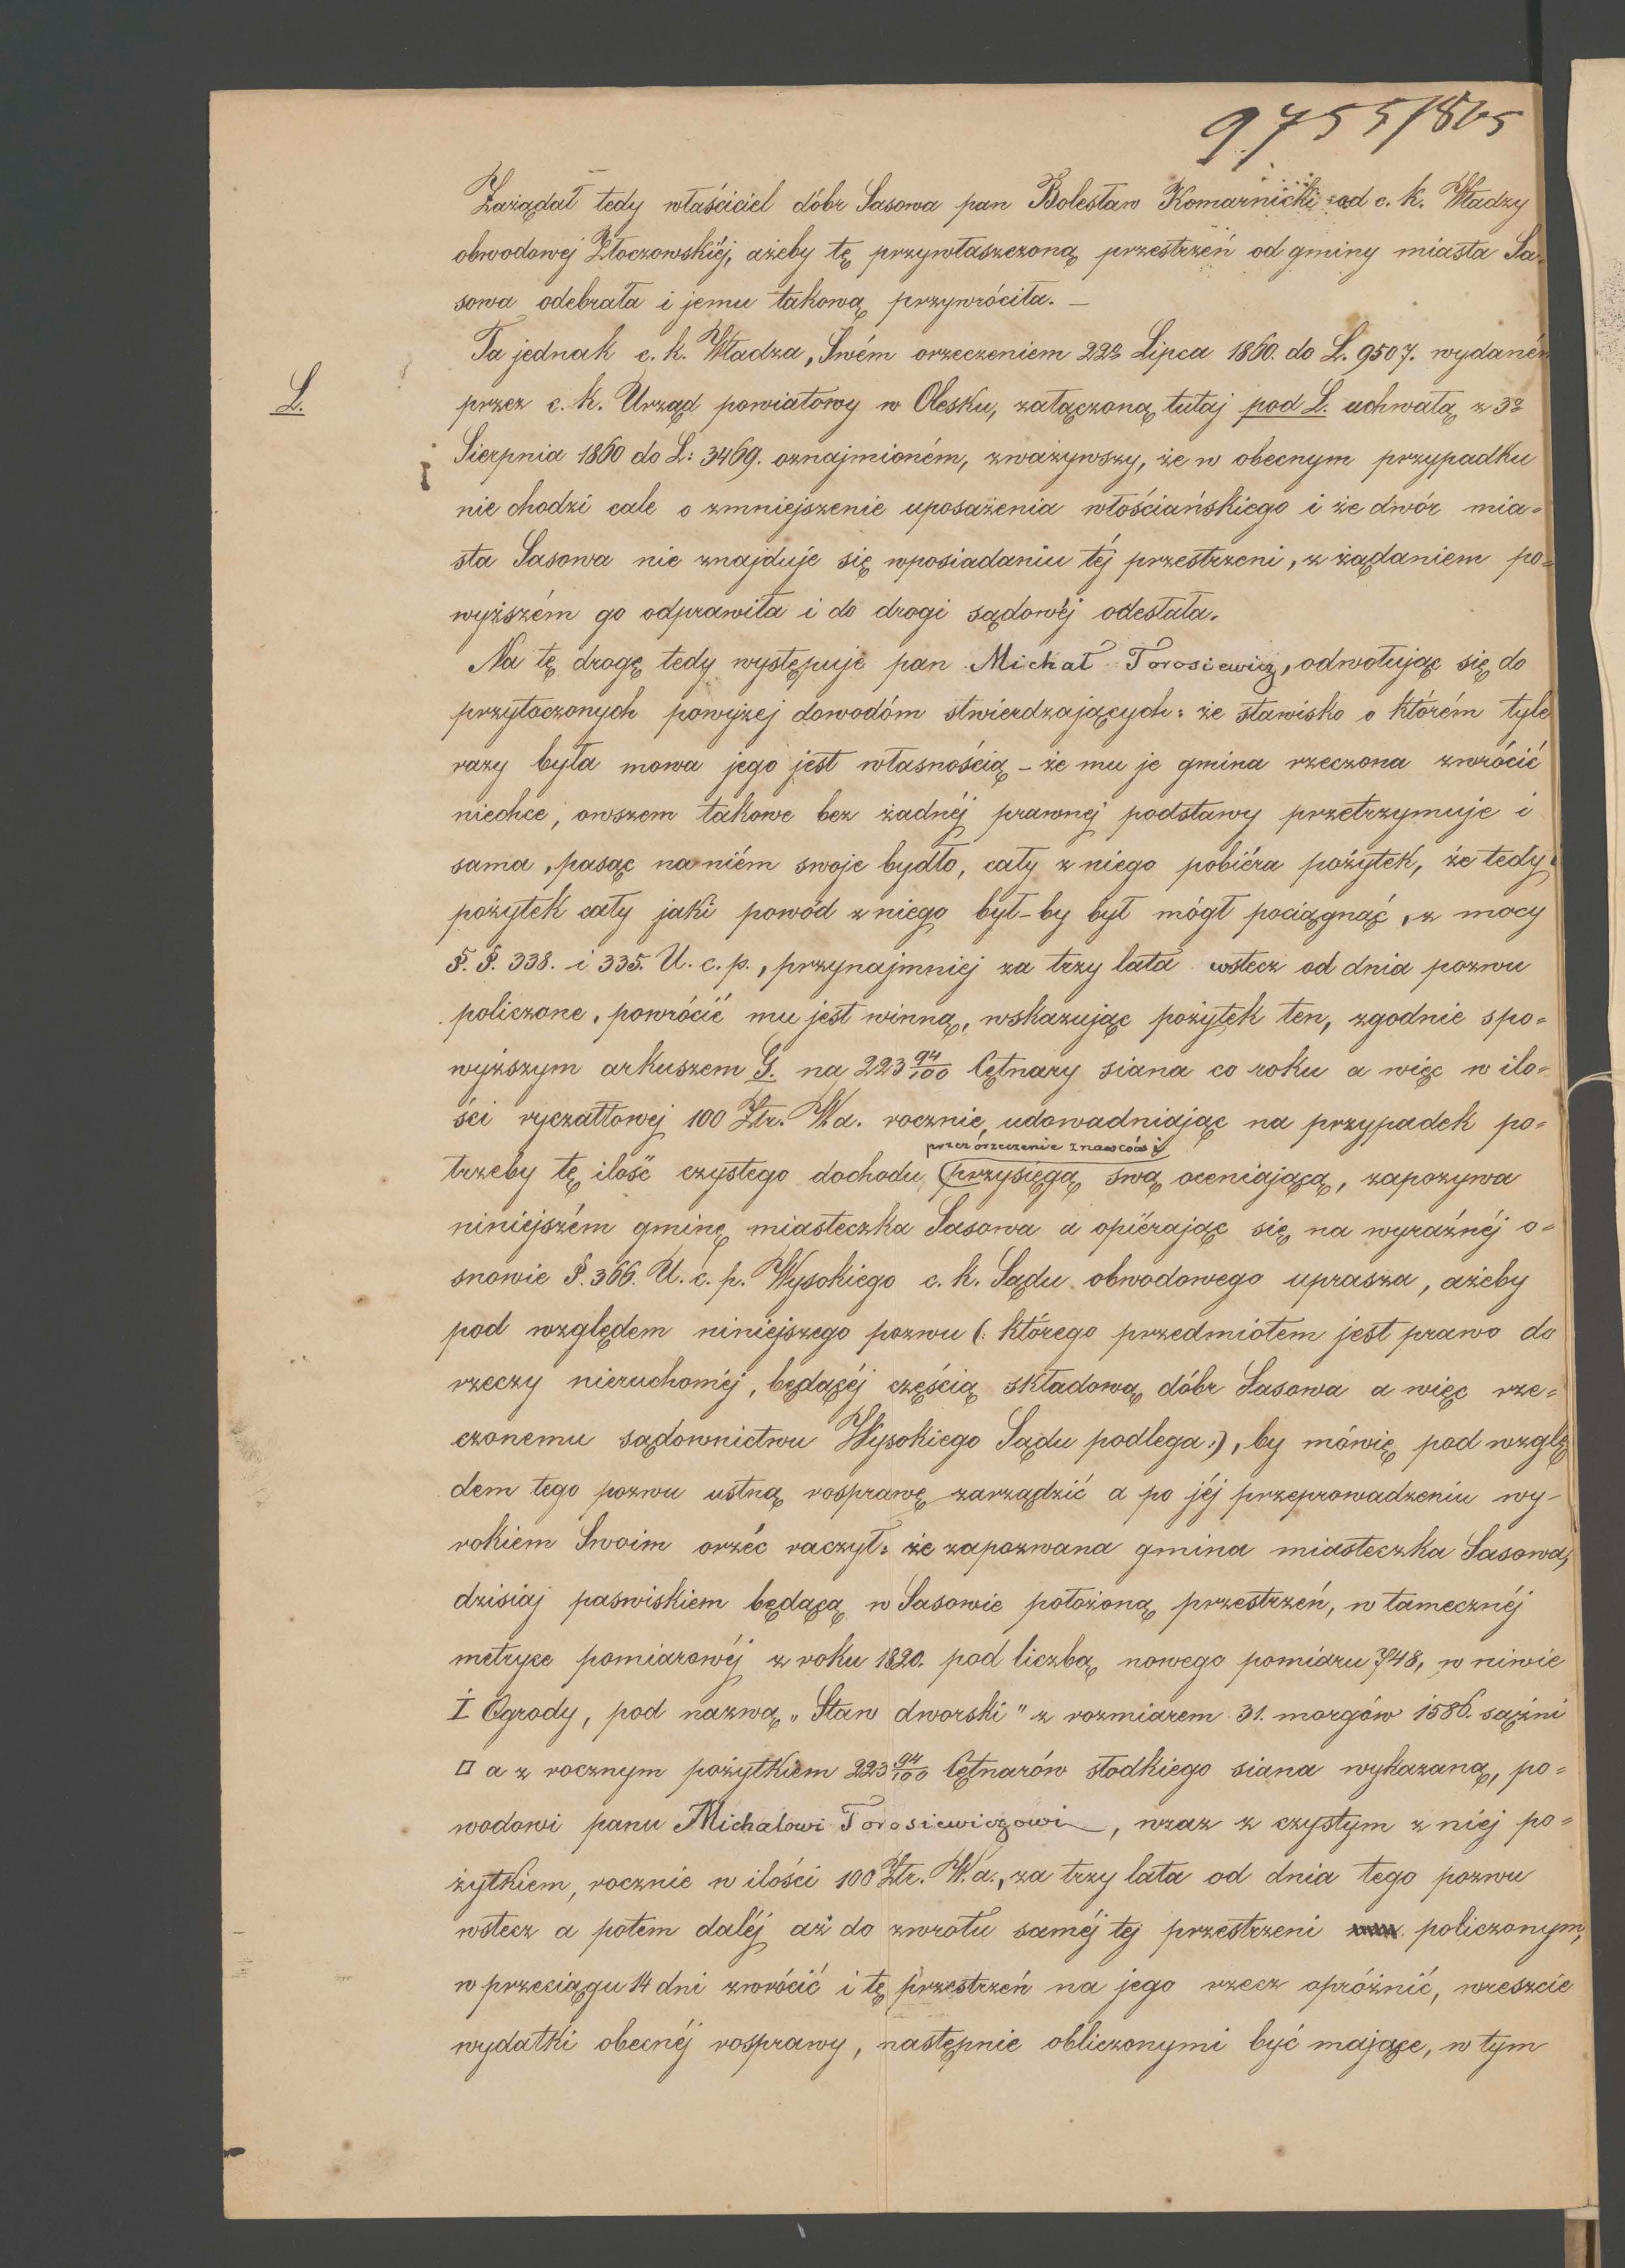 9755/865
Zarządał tedy właściciel dóbr Sasowa pan Bolesław Komarnicki od c. k. Władzy
obwodowej Złoczowskiéj, ażeby tę przywłaszczoną przestrzeń od gminy miasta Sa-
sowa odebrała i jemu takową przywróciła. —
Ta jednak c. k. Władza, Swém orzeczeniem 22º Lipca 1860. do L. 9507. wydaném
L.
przez c. k. Urząd powiatowy w Olesku, załączoną tutaj pod L. uchwałą z 3º
Sierpnia 1860 do L: 3469. oznajmioném, zważywszy, że w obecnym przypadku
nie chodzi cale o zmniejszenie uposażenia włościańskiego i że dwór mia=
sta Sasowa nie znajduje się wposiadaniu téj przestrzeni, z żądaniem po=
wyższém go odprawiła i do drogi sądowéj odesłała.
Na tę drogę tedy występuje pan Michał Torosiewicz, odwołując się do
przytoczonych powyżej dowodóm stwierdzających: że stawisko o którém tyle
razy była mowa jego jest własnością – że mu je gmina rzeczona zwrócić
niechce, owszem takowe bez żadnéj prawnej podstawy przetrzymuje i
sama, pasąc na niém swoje bydło, cały z niego pobiéra pożytek, że tedy
pożytek cały jaki powód z niego był-by był mógł pociągnąć, z mocy
§. §. 338. i 335. U. c. p., przynajmniej za trzy lata wstecz od dnia pozwu
policzone, powrócić mu jest winną, wskazując pożytek ten, zgodnie spo=
wyższym arkuszem G. na 223 94/100 Cętnary siana co roku a więc w ilo=
ści ryczałtowej 100 Złr. Wa. rocznie, udowadniając na przypadek po=
przez orzeczenie znawców i
trzeby tę ilość czystego dochodu, przysięgą swą oceniającą, zapozywa
niniejszém gminę miasteczka Sasowa a opiérając się na wyraźnéj o=
snowie §. 366. U. c. p. Wysokiego c. k. Sądu obwodowego uprasza, ażeby
pod względem niniejszego pozwu (: którego przedmiotem jest prawo do
rzeczy nieruchoméj, będącéj częścią składową dóbr Sasowa a więc rze=
czonemu sądownictwu Wysokiego Sądu podlega :), by mówię pod wzglę
dem tego pozwu ustną rosprawę zarządzić a po jéj przeprowadzeniu wy-
rokiem Swoim orzéc raczył: że zapozwana gmina miasteczka Sasowa,
dzisiaj paswiskiem będącą w Sasowie położoną przestrzeń, w tamecznéj
metryce pomiarowéj z roku 1820. pod liczbą nowego pomiaru 748, w niwie
I Ogrody, pod nazwą „Staw dworski" z rozmiarem 31. morgów 1586. sążni
□ a z rocznym pożytkiem 223 94/100 Cętnarów słodkiego siana wykazaną, po=
wodowi panu Michałowi Torosiewiczowi, wraz z czystym z niéj po=
żytkiem, rocznie w ilości 100 Złr. W. a., za trzy lata od dnia tego pozwu
wstecz a potem daléj aż do zwrotu saméj tej przestrzeni policzonym,
w przeciągu 14 dni zwrócić i tę przestrzeń na jego rzecz opróżnić, wreszcie
wydatki obecnéj rosprawy, następnie obliczonymi być mające, w tym